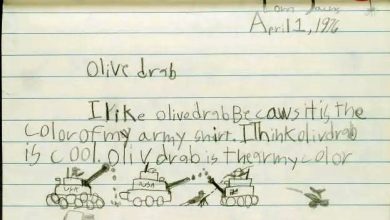 April 1, 1976
Olive drab
I like olivedrab Becaws it is the
Color of my army shirt. I Think olivdrab
is cool. Oliv drab is the army color
USA